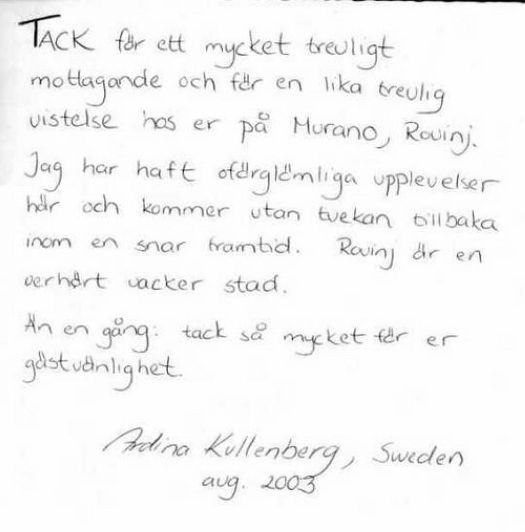 TACK för ett mycket trevligt
mottagande och för en lika trevlig
vistelse hos er på Murano, Rovinj.
Jag har haft oförglömliga upplevelser
här och kommer utan tvekan tillbaka
inom en snar framtid. Rovinj är en
oerhört vacker stad.
Än en gång: tack så mycket för er
gästvänlighet.
Ardina Kullenberg, Sweden
aug. 2003